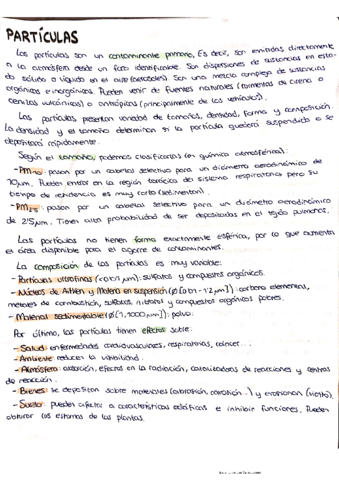 PARTÍCULAS
Las partículas son un contaminante primario, Es decir, son emitidas directamente
a la atmósfera desde un foco identificable. Son dispersiones de sustancias en esta-
do sólido o líquido en el aire (aerosoles). Son una mezcla compleja de sustancias
orgánicas e inorgánicas. Pueden venir de fuentes naturales (tormentas de arena o
cenizas volcánicas) o antrópicas (principalmente de los vehículos).
Las partículas presentan variedad de tamaños, densidad, forma y composición.
La densidad y el tamaño determinan si la partícula quedará suspendida o se
depositará rápidamente.
Según el tamaño, podemos clasificarlas (en química atmosférica):
- PM10: pasan por un cabezal selectivo para un diámetro aerodinámico de
10μm. Pueden entrar en la región torácica del sistema respiratorio pero su
tiempo de residencia es muy corto (sedimentan).
- PM2,5: pasan por un cabezal selectivo para un diámetro aerodinámico
de 2'5μm. Tienen alta probabilidad de ser depositadas en el tejido pulmonar.
Las partículas no tienen forma exactamente esférica, por lo que aumenta
el área disponible para el agarre de contaminantes.
La composición de las partículas es muy variable:
- Partículas ultrafinas (<0'01 μm): sulfatos y compuestos orgánicos.
- Núcleos de Aitken y Materia en suspensión (φ [0'01 - 1'2 μm]): carbono elemental,
metales de combustión, sulfatos, nitratos y compuestos orgánicos polares.
- Material sedimentable (φ [1, 1000 μm]): polvo.
Por último, las partículas tienen efectos sobre:
- Salud: enfermedades cardiovasculares, respiratorias, cáncer...
- Ambiente: reduce la visibilidad.
- Atmósfera: oxidación, efectos en la radiación, catalizadores de reacciones y centros
de reacción.
- Bienes: se depositan sobre materiales (abrasión, corrosión...) y erosionan (viento).
- Suelo: pueden afectar a características edáficas e inhibir funciones. Pueden
obturar los estomas de las plantas.